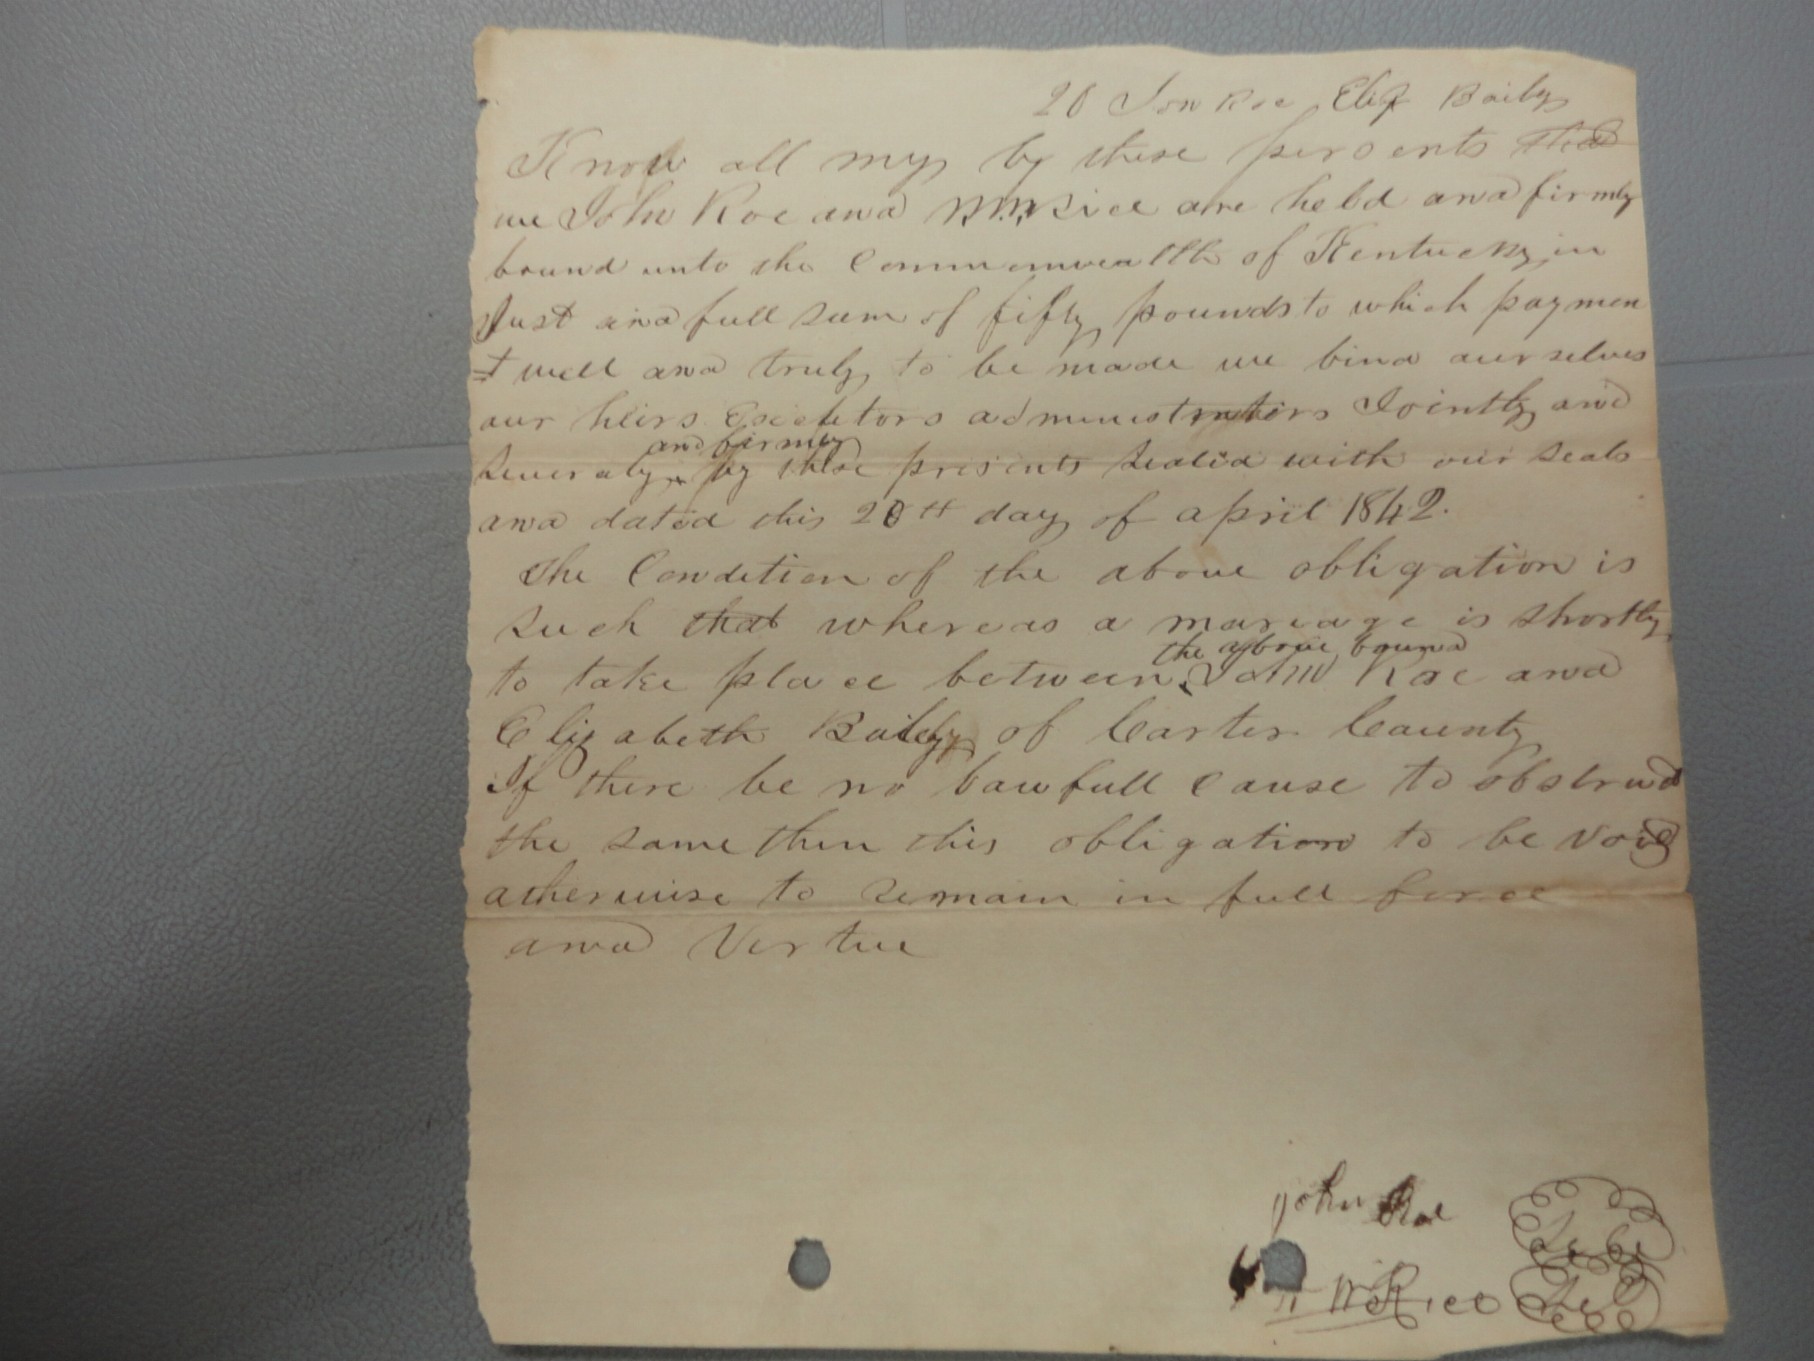 20 Jon Roe Eliz Baily
Know all my by these persents that
we John Roe and Wm Rice are held and firmly
bound unto the Commonwealth of Kentucky in
Just and full sum of fifty pounds to which paymen
t well and truly to be made we bind aurselves
aur heirs Executors administrators Jointly and
and firmly
severaly by these presents sealed with our seals
and dated this 20th day of april 1842.
The Condition of the above obligation is
such that whereas a mariage is shortly
the above bound
to take place between John Roe and
Elizabeth Baily of Carter Caunty
If there be no lawfull cause to obstruct
the same then this obligation to be void
atherwise to remain in full force
and Vertue
John Roe
W Rice